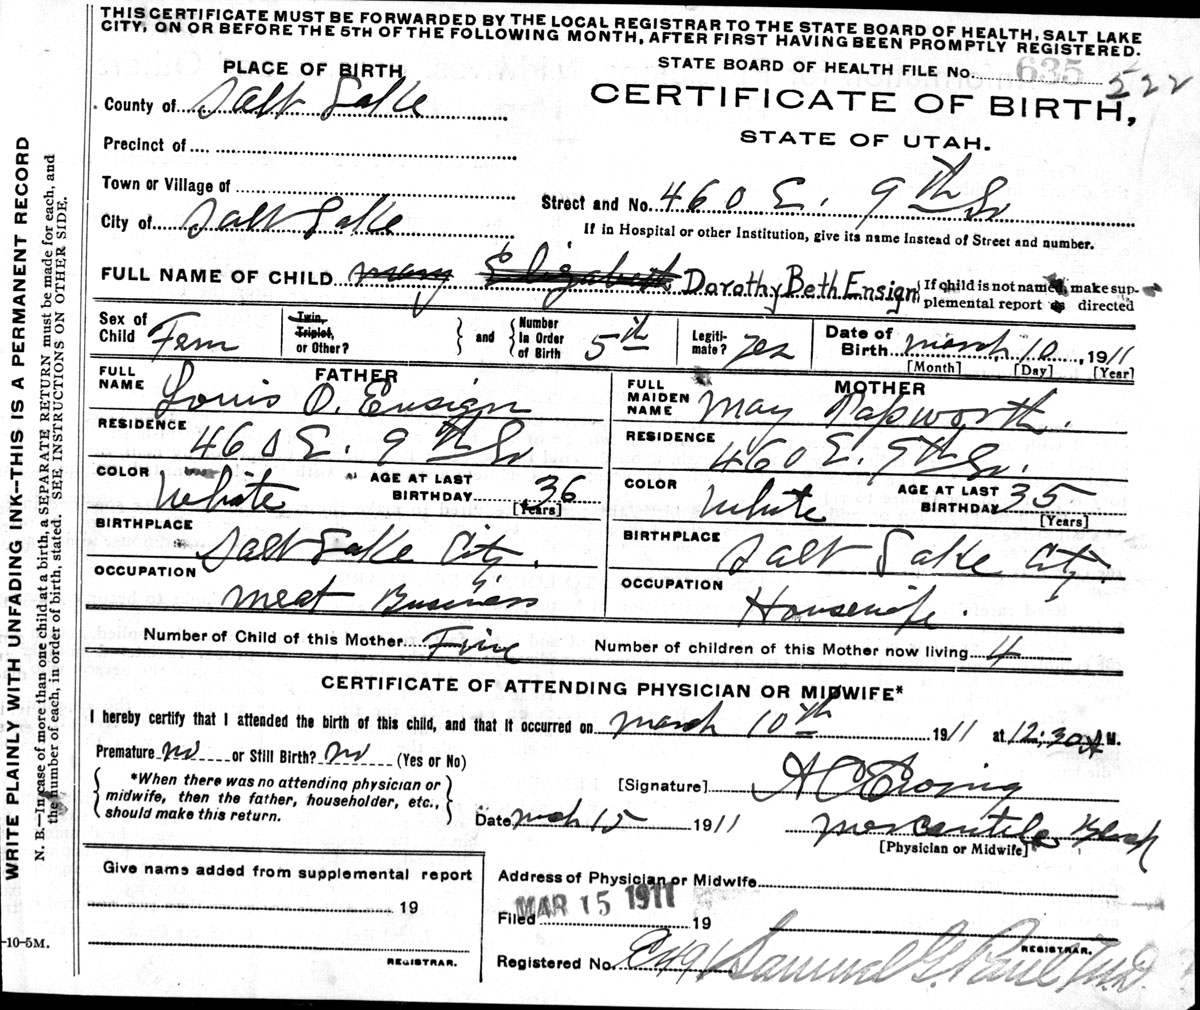 THIS CERTIFICATE MUST BE FORWARDED BY THE LOCAL REGISTRAR TO THE STATE BOARD OF HEALTH, SALT LAKE
CITY, ON OR BEFORE THE 5TH OF THE FOLLOWING MONTH, AFTER FIRST HAVING BEEN PROMPTLY REGISTERED.
PLACE OF BIRTH
STATE BOARD OF HEALTH FILE No. 635 522
County of Salt Lake
CERTIFICATE OF BIRTH,
STATE OF UTAH.
Precinct of
Town or Village of
Street and No. 460 E. 9th So
City of Salt Lake
If in Hospital or other Institution, give its name instead of Street and number.
FULL NAME OF CHILD Mary Elizabeth Dorothy Beth Ensign
If child is not named, make sup-
plemental report as directed
Sex of Child Fem
Twin, Triplet, or Other?
and
Number in Order of Birth 5th
Legiti-mate? Yes
Date of Birth March 10, 1911
[Month] [Day] [Year]
FATHER
FULL NAME Louis O. Ensign
RESIDENCE 460 E 9th So
COLOR White
AGE AT LAST BIRTHDAY 36
[Years]
BIRTHPLACE Salt Lake City.
OCCUPATION Meat Business
MOTHER
FULL MAIDEN NAME May Papworth.
RESIDENCE 460 E. 9th So.
COLOR White
AGE AT LAST BIRTHDAY 35
[Years]
BIRTHPLACE Salt Lake City
OCCUPATION Housewife.
Number of Child of this Mother Five
Number of children of this Mother now living 4
CERTIFICATE OF ATTENDING PHYSICIAN OR MIDWIFE*
I hereby certify that I attended the birth of this child, and that it occurred on March 10th 1911 at 12:30 A M.
Premature no or Still Birth? no (Yes or No)
*When there was no attending physician or
midwife, then the father, householder, etc.,
should make this return.
[Signature]
Date Mch 15 1911
Mercantile Block
[Physician or Midwife]
Give name added from supplemental report
19
REGISTRAR.
Address of Physician or Midwife
Filed MAR 15 1911 19
REGISTRAR.
Registered No. Samuel G. Paul M.D.
WRITE PLAINLY WITH UNFADING INK—THIS IS A PERMANENT RECORD
N. B.—In case of more than one child at a birth, a SEPARATE RETURN must be made for each, and
the number of each, in order of birth, stated. SEE INSTRUCTIONS ON OTHER SIDE.
-10-5M.